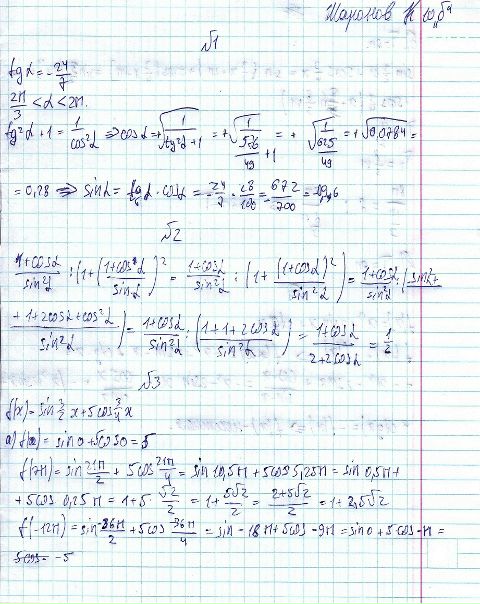 Шаронов К 10 „Б"
№1
tgα = -24/7
2π/3 < α < 2π.
tg²α + 1 = 1/cos²α ⇒ cosα = +√(1/(tg²α+1)) = +√(1/(576/49 + 1)) = +√(1/(625/49)) = +√0,0784 =
= 0,28 ⇒ sinα = tgα · cosα = -24/7 · 28/100 = -672/700 =
№2
(1+cosα)/sin²α : (1+((1+cosα)/sinα)²) = (1+cosα)/sin²α : (1 + (1+cosα)²/sin²α) = (1+cosα)/sin²α : (sin²α +
+ 1+2cosα+cos²α)/sin²α) = (1+cosα)/sin²α : ((1+1+2cosα)/sin²α) = (1+cosα)/(2+2cosα) = 1/2
№3
f(x) = sin 3/2 x + 5cos 3/4 x
а) f(0) = sin0 + 5cos0 = 5
f(7π) = sin 21π/2 + 5cos 21π/4 = sin 10,5π + 5cos 5,25π = sin 0,5π +
+ 5cos 0,25π = 1+5 √2/2 = 1+ 5√2/2 = (2+5√2)/2 = 1+2,5√2
f(-12π) = sin -36π/2 + 5cos -36π/4 = sin -18π + 5cos -9π = sin0 + 5cos -π =
-5